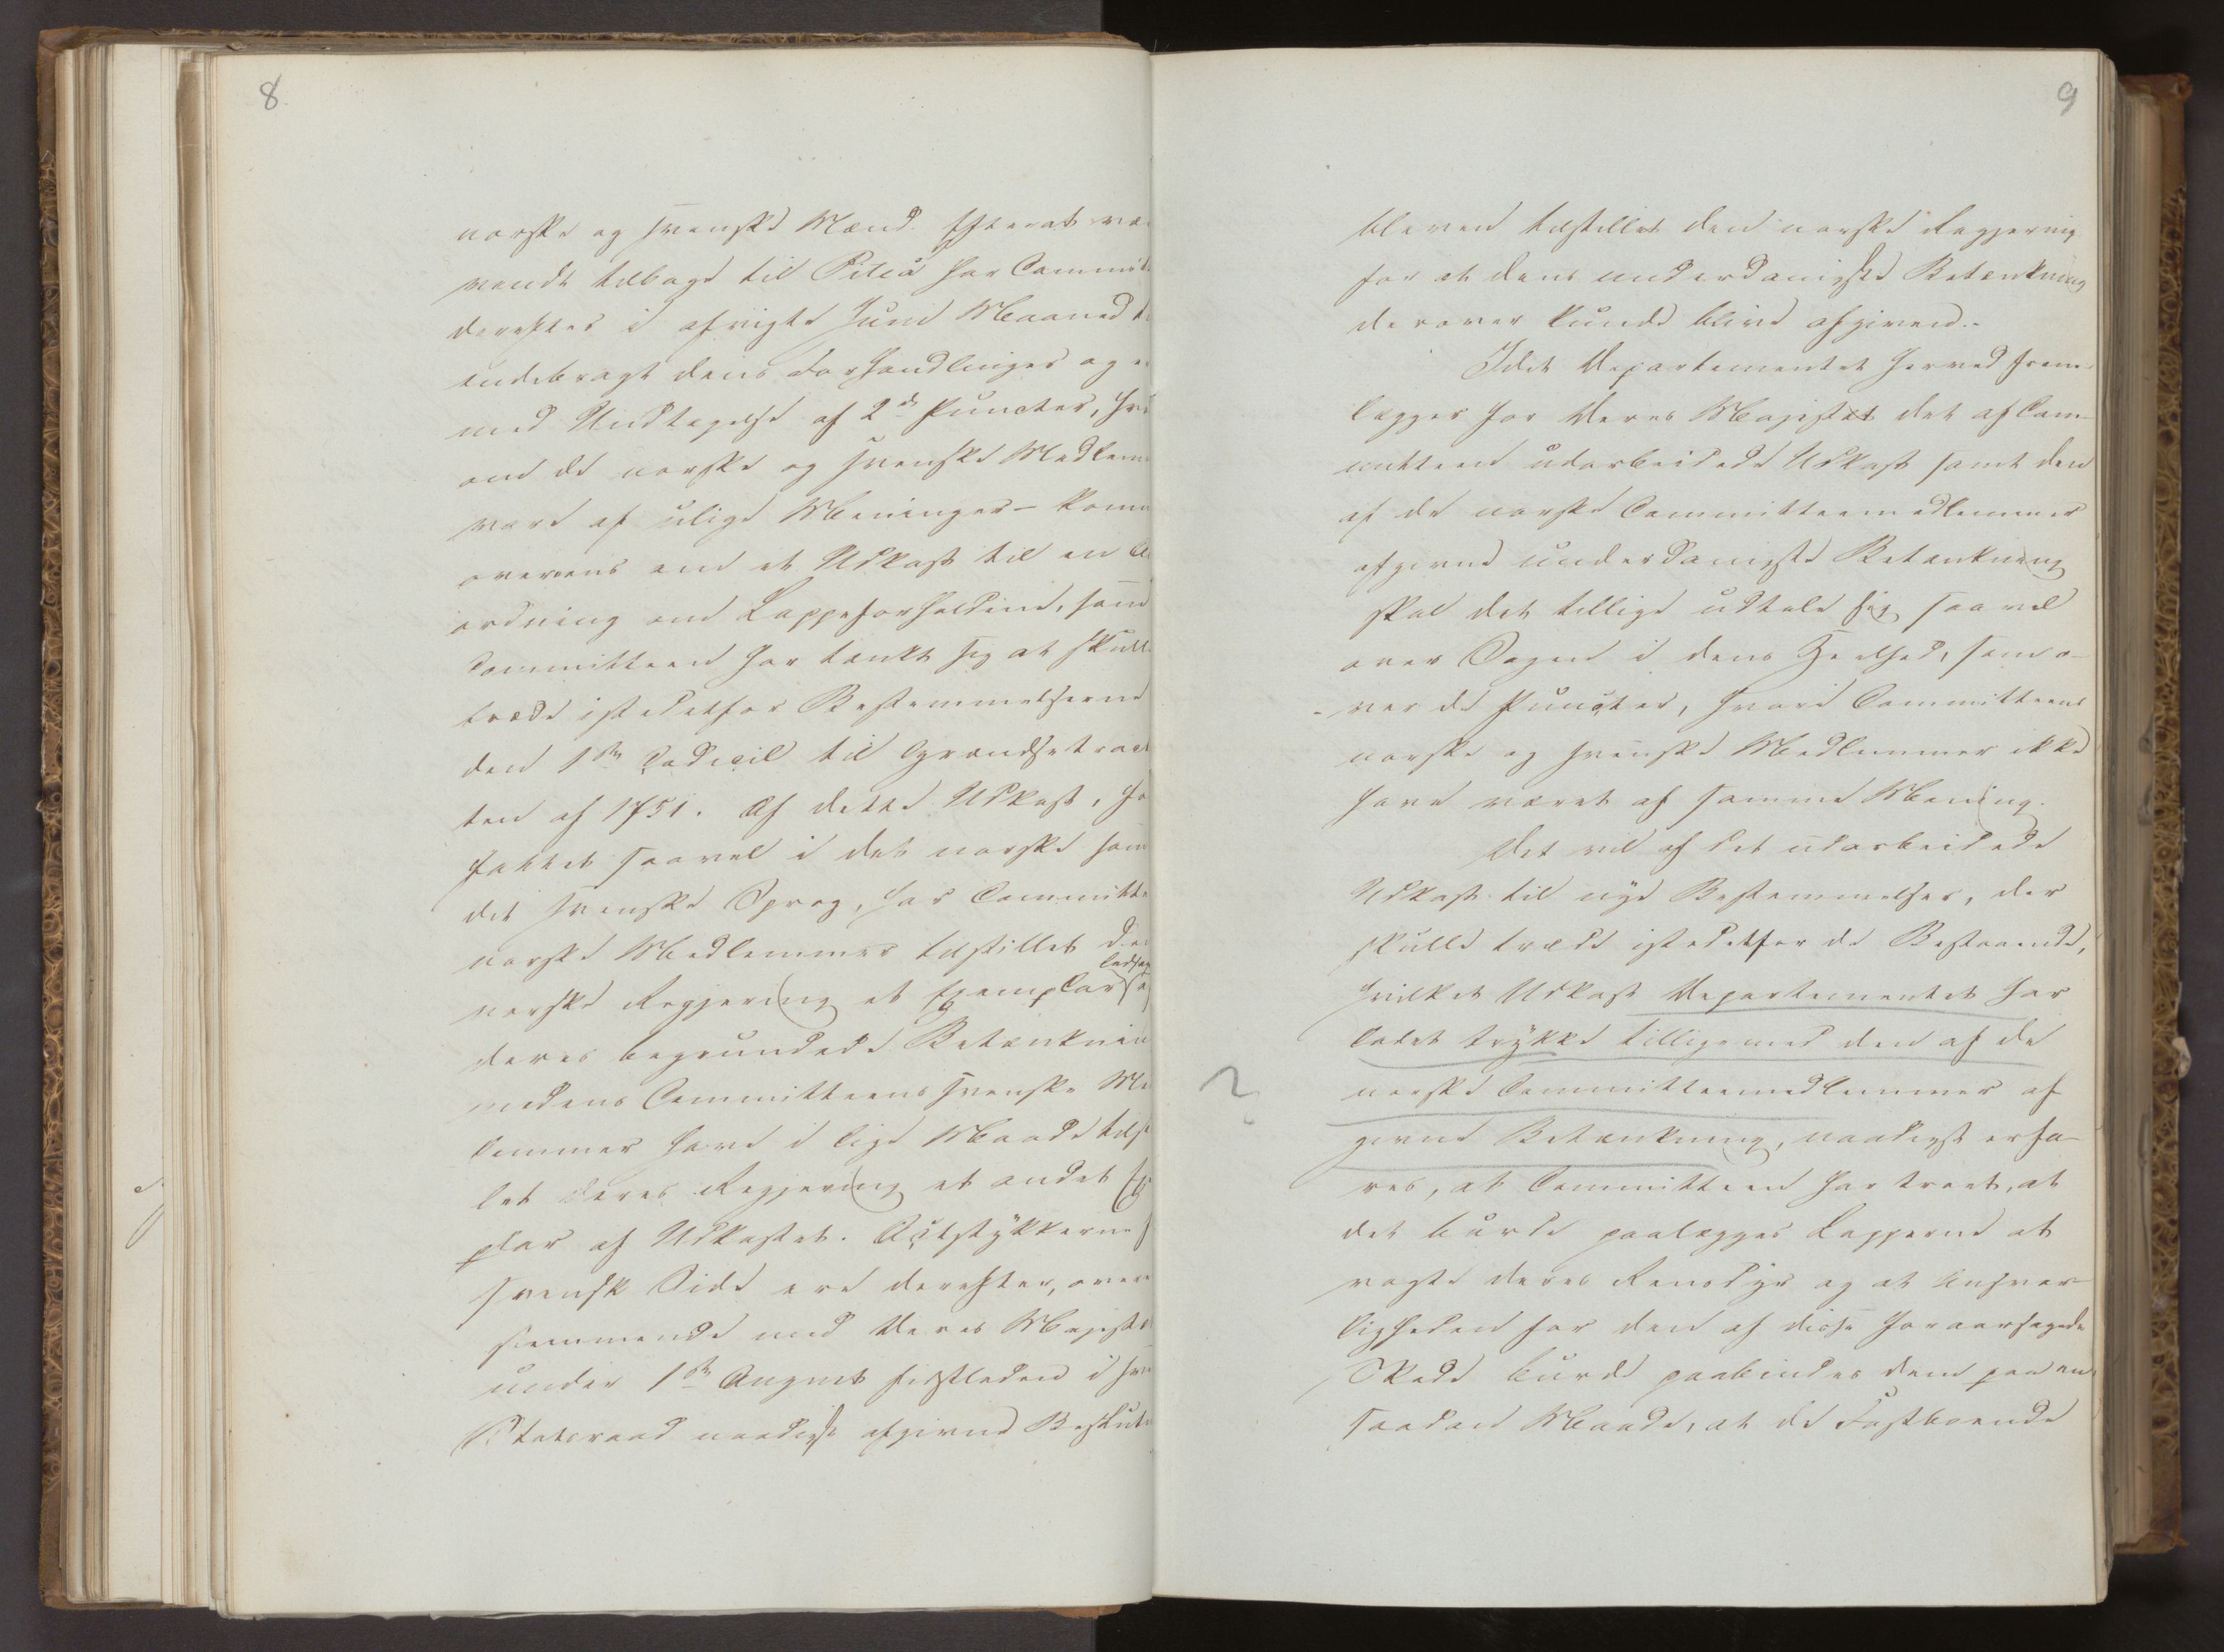 8
norske og svenske Mænd. Efterat væ
vendt tilbage til Piteå har Committe
derefter i afvigte Juni Maaned
endebragt dens Forhandlinger og
med Undtagelse af 2de Puncter, hvor
om de norske og svenske Medlem
vare af ulige Meninger – komm
overeens om et Udkast til en
ordning om Lappeforholdene, som
Committeen har tænkt sig at skulle
træde istedetfor Bestemmelserne
den 1ste Codicil til Grændsetract
ten af 1751. Af dette Udkast,
fattet saavel i det norske som
det svenske Sprog, har Committe
norske Medlemmer tilstillet den
norske Regjering et Exemplar ledsag
deres begrundede Betænknin
medens Committeens svenske Me
lemmer have i lige Maade tilst
let deres Regjering et andet Ex
plar af Udkastet. Actstykkerne
svensk Side ere derefter, overe
stemmende med Deres Majestæ
under 1ste August sidstleden i sve
Statsraad naadigst afgivne Beslut
9
bleven tilstillet den norske Regjering
for at dens underdanigste Betænkning
derover kunde blive afgiven.
Idet Departementet herved frem-
lægger for Deres Majestæt det af Com-
mitteen udarbeidede Udkast samt den
af de norske Committeemedlemmer
afgivne underdanigste Betænkning
skal det tillige udtale sig saavel
over Sagen i dens Heelhed, som o-
-ver de Puncter, hvori Committeens
norske og svenske Medlemmer ikke
have været af samme Mening.
Det vil af det udarbeidede
Udkast til nye Bestemmelser, der
skulle træde istedetfor de Bestaaende,
hvilket Udkast Departementet har
ladet trykke tilligemed den af de
norske Committeemedlemmer af-
givne Betænkning, naadigst erfa-
res, at Committeen har troet, at
det burde paalægges Lapperne at
vogte deres Rensdyr og at Ansvar-
ligheden for den af disse foraarsagede
Skade burde paabindes dem paa en
saadan Maade, at de Fastboende